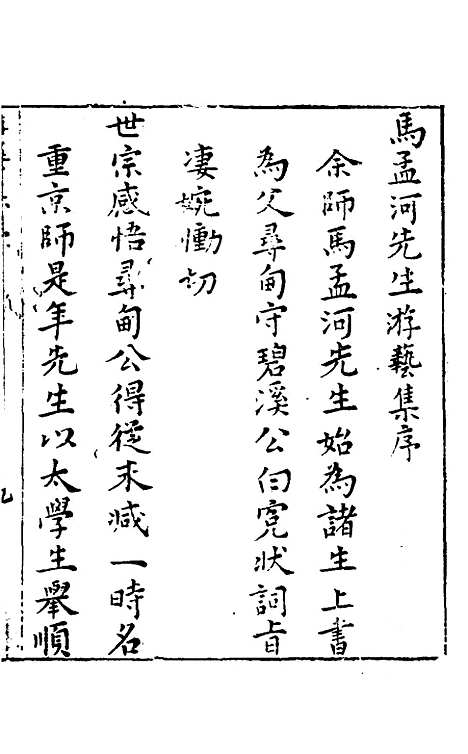 馬孟河先生游藝集序
余師馬孟河先生始為諸生上書
為父尋甸守碧溪公白冤狀詞旨
凄婉慟切
世宗感悟尋甸公得從末減一時名
重京師是年先生以太學生舉順